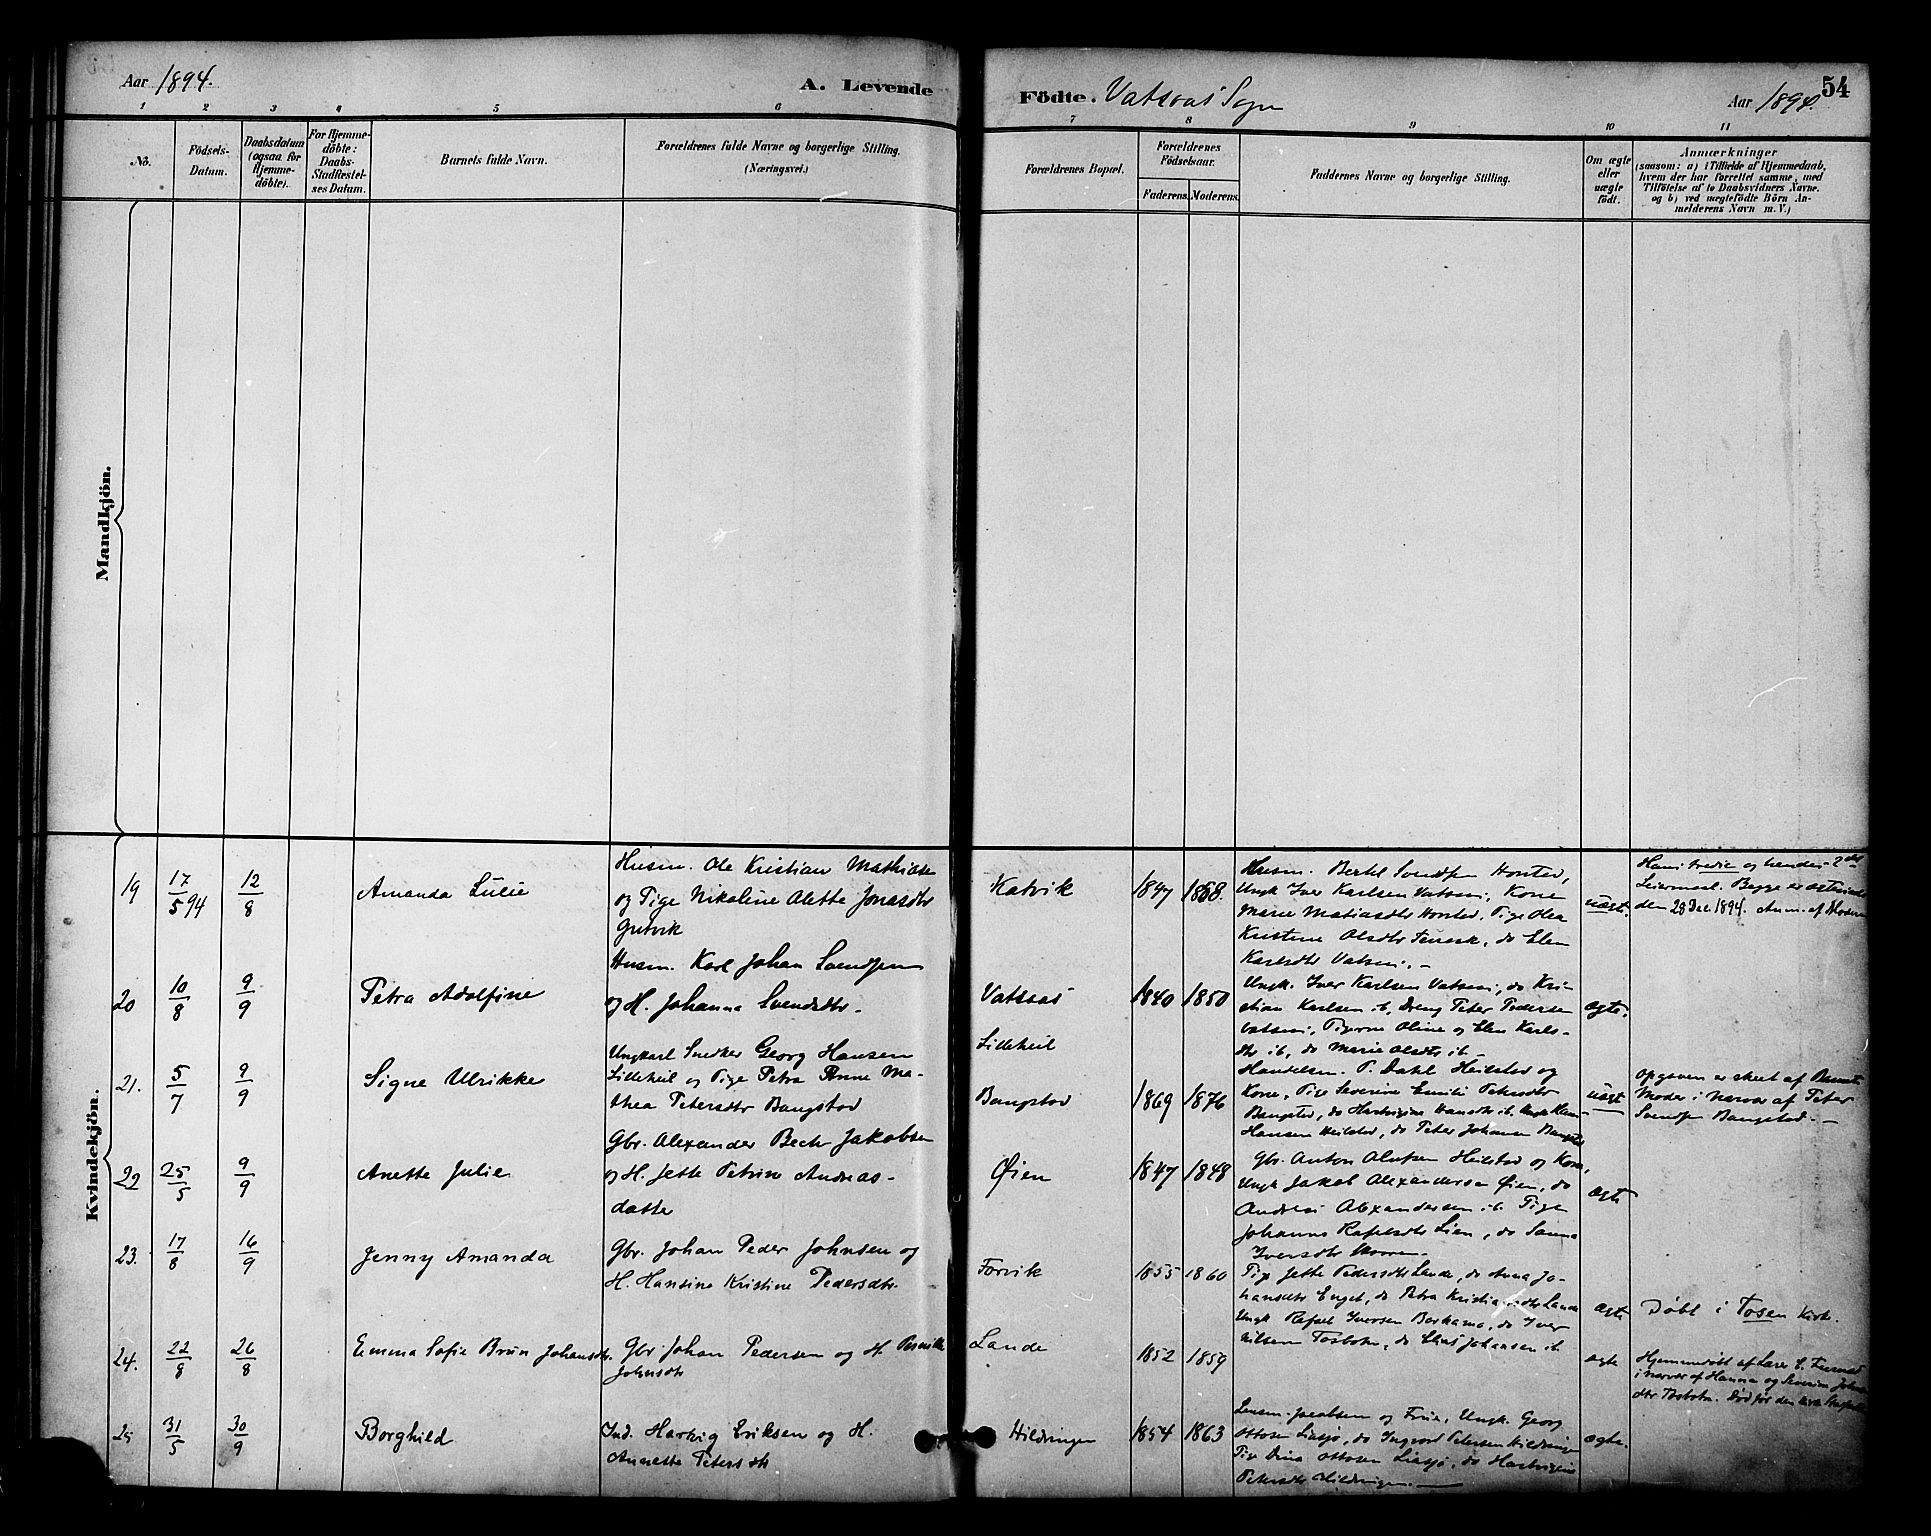 Aar 1894.
A. Levende
Födte. Vatsaas Sogn
Aar 1894.
54
1 2 3 4 5 6
7 8 9 10 11
No.
Födsels-
Datum.
Daabsdatum
(ogsaa for
Hjemme-
döbte).
For Hjemme-
döbte:
Daabs-
Stadfæstel-
ses Datum.
Barnets fulde Navn.
Forældrenes fulde Navne og borgerlige Stilling.
(Næringsvei.)
Forældrenes Bopæl.
Forældrenes
Födselsaar.
Faderens. Moderens.
Faddernes Navne og borgerlige Stilling.
Om ægte
eller
uægte
födt.
Anmærkninger
(saasom: a) i Tilfælde af Hjemmedaab,
hvem der har forrettet samme, med
Tilföielse af to Daabsvidners Navne.
og b) ved uægtefödte Börn An-
melderens Navn m. V.)
Mandkjön.
Kvindekjön.
19
17/5 94
12/8
Amanda Lulie
Husm. Ole Kristian Mathiassen
og Pige Nikoline Alette Jonasdtr
Gutvik
Katvik
1847 1868.
Husm. Bertel Svendsen Horsted,
Ungk Iver Karlsen Vatsen, Kone
Marie Matiasdtr Horsted, Pige Olea
Kristine Olsdtr, do Elen
Karlsdtr Vatsen.
uægte.
Hans tredie og hendes 2det
Leiermaal. Begge er
den 28 Dec. 1894. Anm. af Moderen
20
10/8
9/9
Petra Adolfine
Husm. Karl Johan Svendsen
og H. Johanna Svendsdtr.
Vatsaas
1840 1850
Ungk. Iver Karlsen Vatsen, do Kri-
stian Karlsen ib, Dreng Peter Pedersen
Vatsen, Pigerne Oline og Elen Karls-
dtr ib, do Marie Olsdtr ib
ægte.
21.
5/7
9/9
Signe Ulrikke
Ungkarl Snedker Georg Hansen
Lilleheil og Pige Petra Anne Ma-
thea Petersdtr Bangstad
Lilleheil
Bangstad
1869 1876
Handelsm. P. Dahl Heilstad og
Kone, Pige Severine Emilie Petersdtr
Bangstad, do Hartvigine Hansdtr ib, Ungk
Hansen Heilstad, do Peter Johansen Bangstad
uægt
Opgaven er skeet af Barnets
Moder i Nærvær af Peter
Svendsen Bangstad.
22
25/5
9/9
Anette Julie
Gbr. Alexander Bech Jakobsen
og H. Jette Petrine Andreas-
datter
Øien
1847 1848
Gbr. Anton Olufsen Heilstad og Kone,
Ungk Jakob Alexandersen Øien, do
Andreas Alexandersen ib. Pige
Johanna Rafelsdtr Lien, do Sanna
Iversdtr
ægte
23.
17/8
16/9
Jenny Amanda
Gbr. Johan Peder Johnsen og
H. Hansine Kristine Pedersdtr.
Forvik
1855 1860
Pige Jette Pedersdtr Lande, do Anna Jo-
hansdtr Enget, do Petra Kristiansdtr Lande
Ungk Rafael Iversen Borkamo, do Iver
Nilsen Tosbotn, do Elias Johansen ib
ægte
Døbt i Tosen Kirke.
24.
22/8
26/8
Emma Sofie Brun Johansdtr.
Gbr Johan Pedersen og H. Pernille
Johnsdtr
Lande
1852 1859
ægte
Hjemmedøbt af Lærer E.
i nærvær af Hanna og Severine
dtr Tosbotn. Død før den
25
31/5
30/9
Borghild
Ind. Hartvig Eriksen og H.
Annette Petersdtr
Hildringen
1854 1863
Lensm. Jacobsen og Frue, Ungk. Georg
Ottosen Liasjø, do Ingvart Petersen Hildringen
Pige Dina Ottosen Liasjø, do Hartvigine
Petersdtr Hildringen.
ægte.